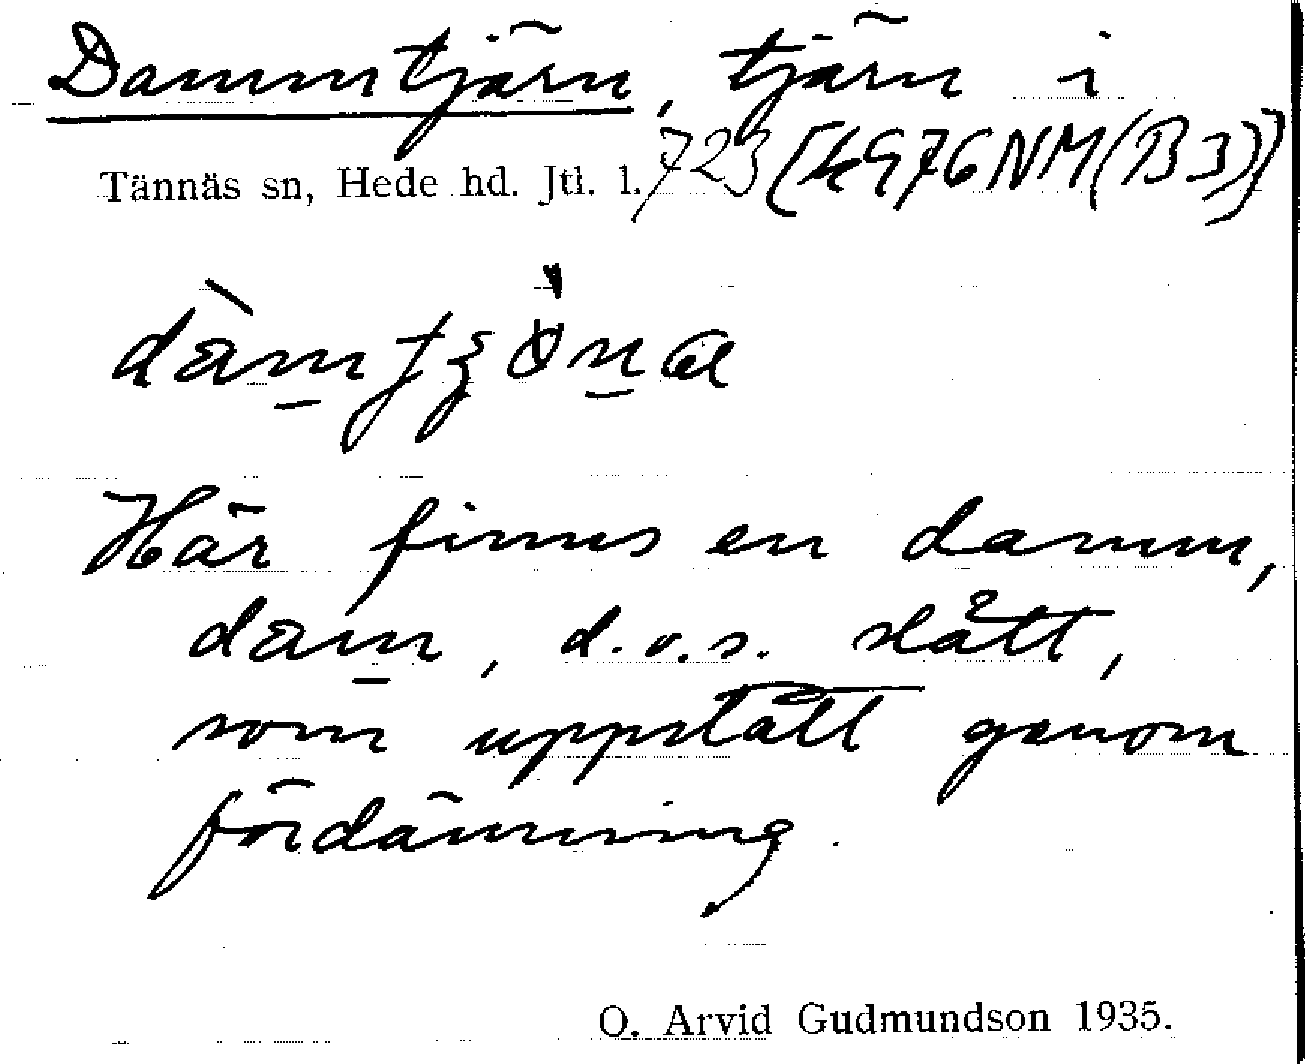 Dammtjärn, tjärn i
Tännäs sn, Hede hd. Jtl. l. 723 [k976NM(B3)]
Här finns en damm,
dam̲, d.v.s. slått,
som uppstått genom
fördämning.
O. Arvid Gudmundson 1935.